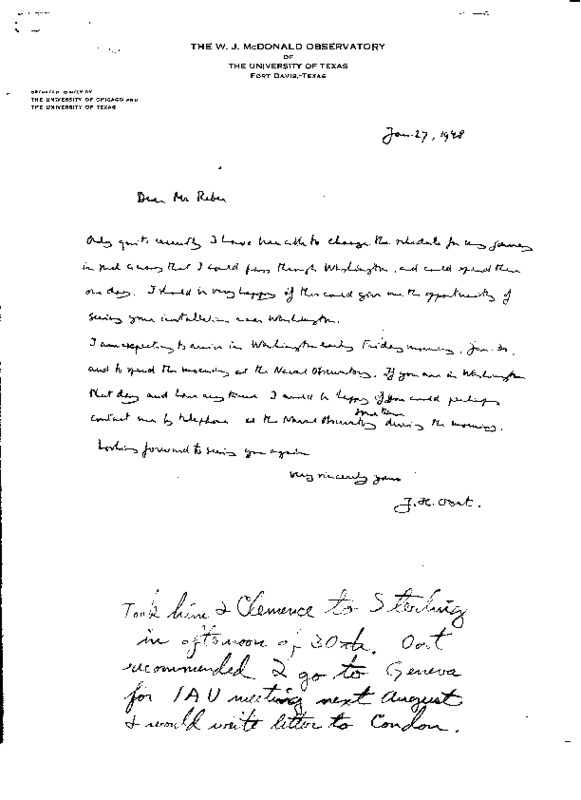 THE W. J. McDONALD OBSERVATORY
OF
THE UNIVERSITY OF TEXAS
FORT DAVIS, TEXAS
OPERATED JOINTLY BY
THE UNIVERSITY OF CHICAGO AND
THE UNIVERSITY OF TEXAS
Jan. 27, 1948
Dear Mr Reber
Only quite recently I have been able to change the schedule for my journey
in such a way that I could pass through Washington, and could spend there
one day. I should be very happy if this could give me the opportunity of
seeing your installation near Washington.
I am expecting to arrive in Washington early Friday morning, Jan. 30,
and to spend the morning at the Naval Observatory. If you are in Washington
that day and have any time I would be happy if you could perhaps
some time
contact me by telephone at the Naval Observatory during the morning.
Looking forward to seeing you again
Very sincerely yours
J. H. Oort.
Took him & Clemence to Sterling
in afternoon of 30th. Oort
recommended I go to Geneva
for IAU meeting next August
& would write letter to Condon.